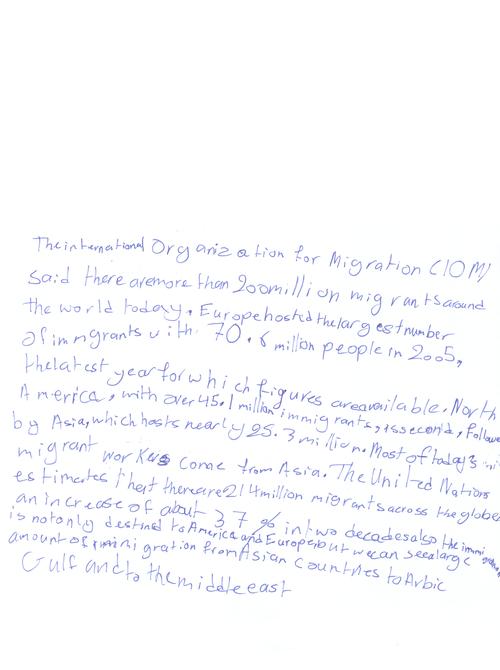 The international Organization for Migration (IOM)
said there are more than 200 million migrants around
the world today. Europe hosted the largest number
of immgrants with 70.6 million people in 2005,
the latest year for which figures are available. North
America, with over 45.1 million immigrants, is second, followe
by Asia, which hosts nearly 25.3 million. Most of today's
migrant workers come from Asia. The United Nations
estimates that there are 214 million migrants across the globe
an increase of about 37 % in two decades also the
is not only destind to America and Europe but we can see a large
amount of immigration from Asian countries to Arbic
Gulf and to the middle east